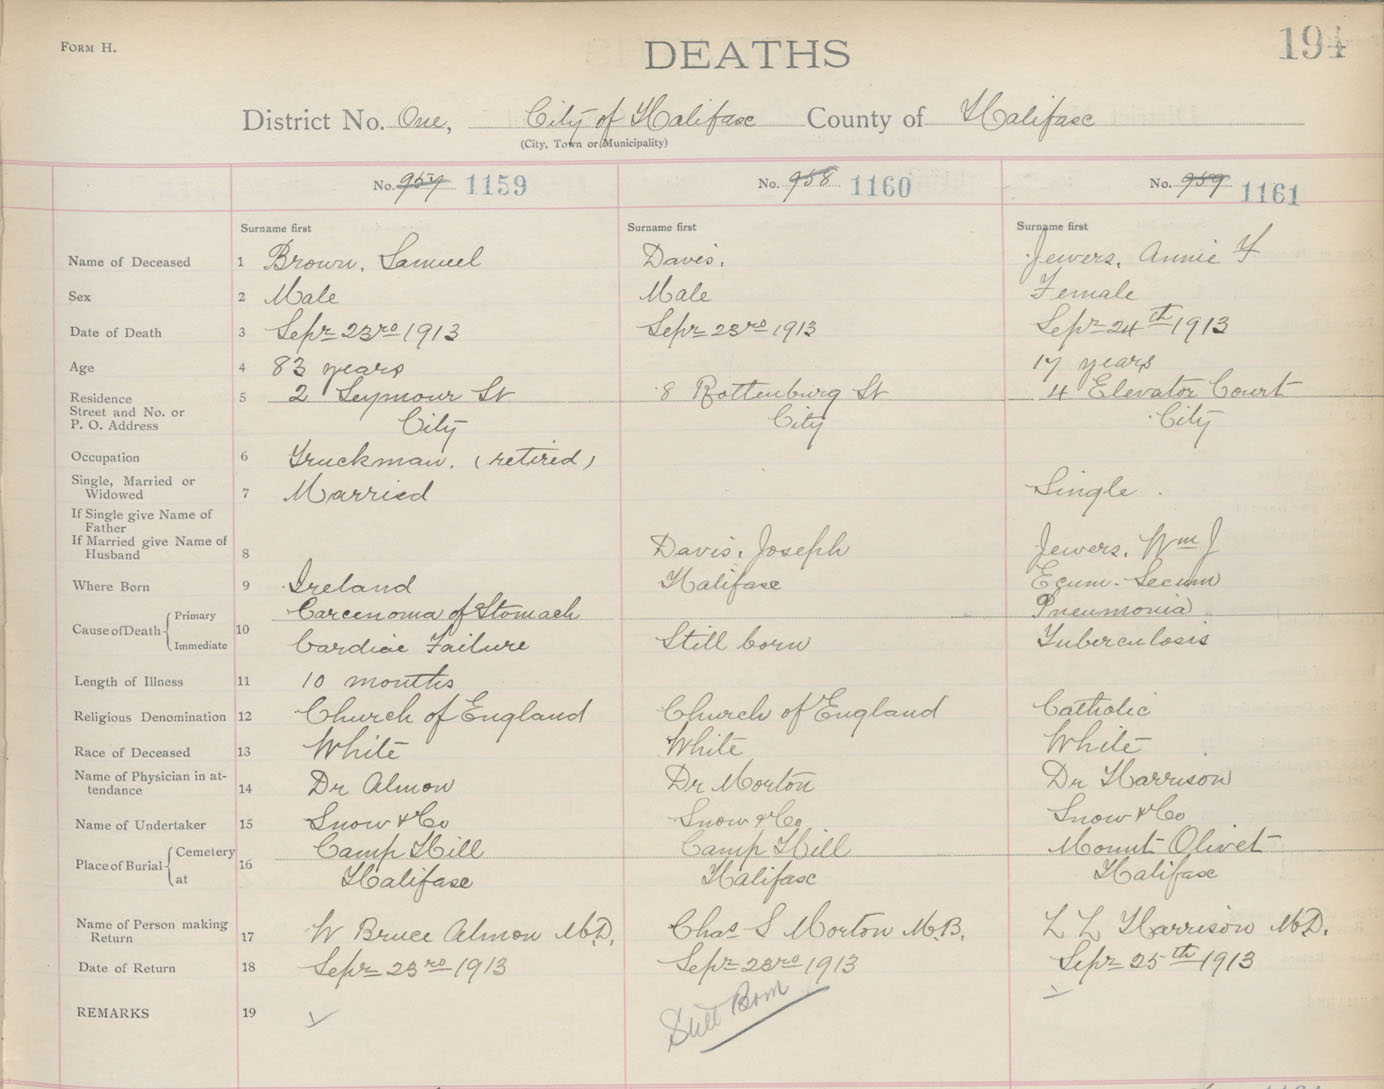 FORM H.
DEATHS
194
District No. One, City of Halifax County of Halifax
(City, Town or Municipality)
No. 957 1159 No. 958 1160 No. 959 1161
Surname first Surname first Surname first
Name of Deceased 1 Brown, Samuel Davis, Jewers, Annie F
Sex 2 Male Male Female
Date of Death 3 Sepr 23rd 1913 Sepr 23rd 1913 Sepr 24th 1913
Age 4 83 years 17 years
Residence 5 2 Seymour St 8 Rottenburg St 4 Elevator Court
Street and No. or
P. O. Address City City City
Occupation 6 Truckman. (retired)
Single, Married or
Widowed 7 Married Single
If Single give Name of
Father
If Married give Name of
Husband 8 Davis, Joseph Jewers, Wm J
Where Born 9 Ireland Halifax Ecum-Secum
Cause of Death Primary Carcenoma of Stomach Pneumonia
10 Immediate Cardiac Failure Still born Tuberculosis
Length of Illness 11 10 months
Religious Denomination 12 Church of England Church of England Catholic
Race of Deceased 13 White White White
Name of Physician in at-
tendance 14 Dr Almon Dr Morton Dr Harrison
Name of Undertaker 15 Snow & Co Snow & Co Snow & Co
Place of Burial Cemetery 16 Camp Hill Camp Hill Mount Olivet
at Halifax Halifax Halifax
Name of Person making
Return 17 W Bruce Almon M.D. Chas S Morton M.B. L L Harrison M.D.
Date of Return 18 Sepr 23rd 1913 Sepr 23rd 1913 Sepr 25th 1913
REMARKS 19 Still Born